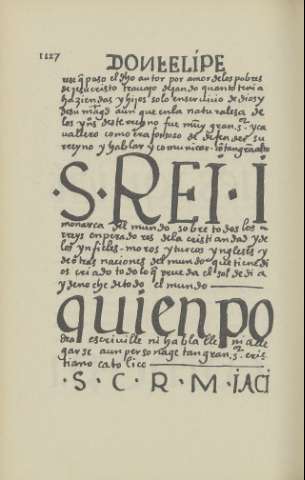 1117
DON FELIPE
rese q̃ paso el dho autor por amor de los pobres
de jesucristo trauajo dejando quanto tenia
haziendas y hijos solo en seruicio de dios y
de su magd aunque en la naturalesa de
los yñs deste rreyno fue muy gran s.r y ca
uallero como era forsoso de defender su
rreyno y hablar y comunicar
· S · REI · I
monarca del mundo sobre todos los
rreys enperadores de la cristiandad y de
los ynfieles moros y turcos y ngleses y
de otras naciones del mundo que tiene di
os criado todo lo q̃ rrueda el sol de dia
y de noche de todo el mundo
quien po
dra escriuille ni hablalle ni alle
garse a un personage tan gran s.r cris
tiano catolico
· S · C · R · M · IACI